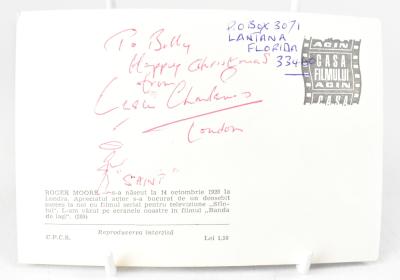 To Billy
Happy Christmas
from
Leslie Charteris
London
"SAINT"
P.O BOX 3071
LANTANA
FLORIDA
ACIN
CASA
FILMULUI
ACIN
CASA
ROGER MOORE, s-a născut la 14 octombrie 1928 la
Londra. Apreciatul actor s-a bucurat de un deosebit
succes la noi cu filmul serial pentru televiziune „Sfîn-
tul". L-am văzut pe ecranele noastre în filmul „Banda
de lași".
C.P.C.S.
Reproducerea interzisă
Lei 1,50